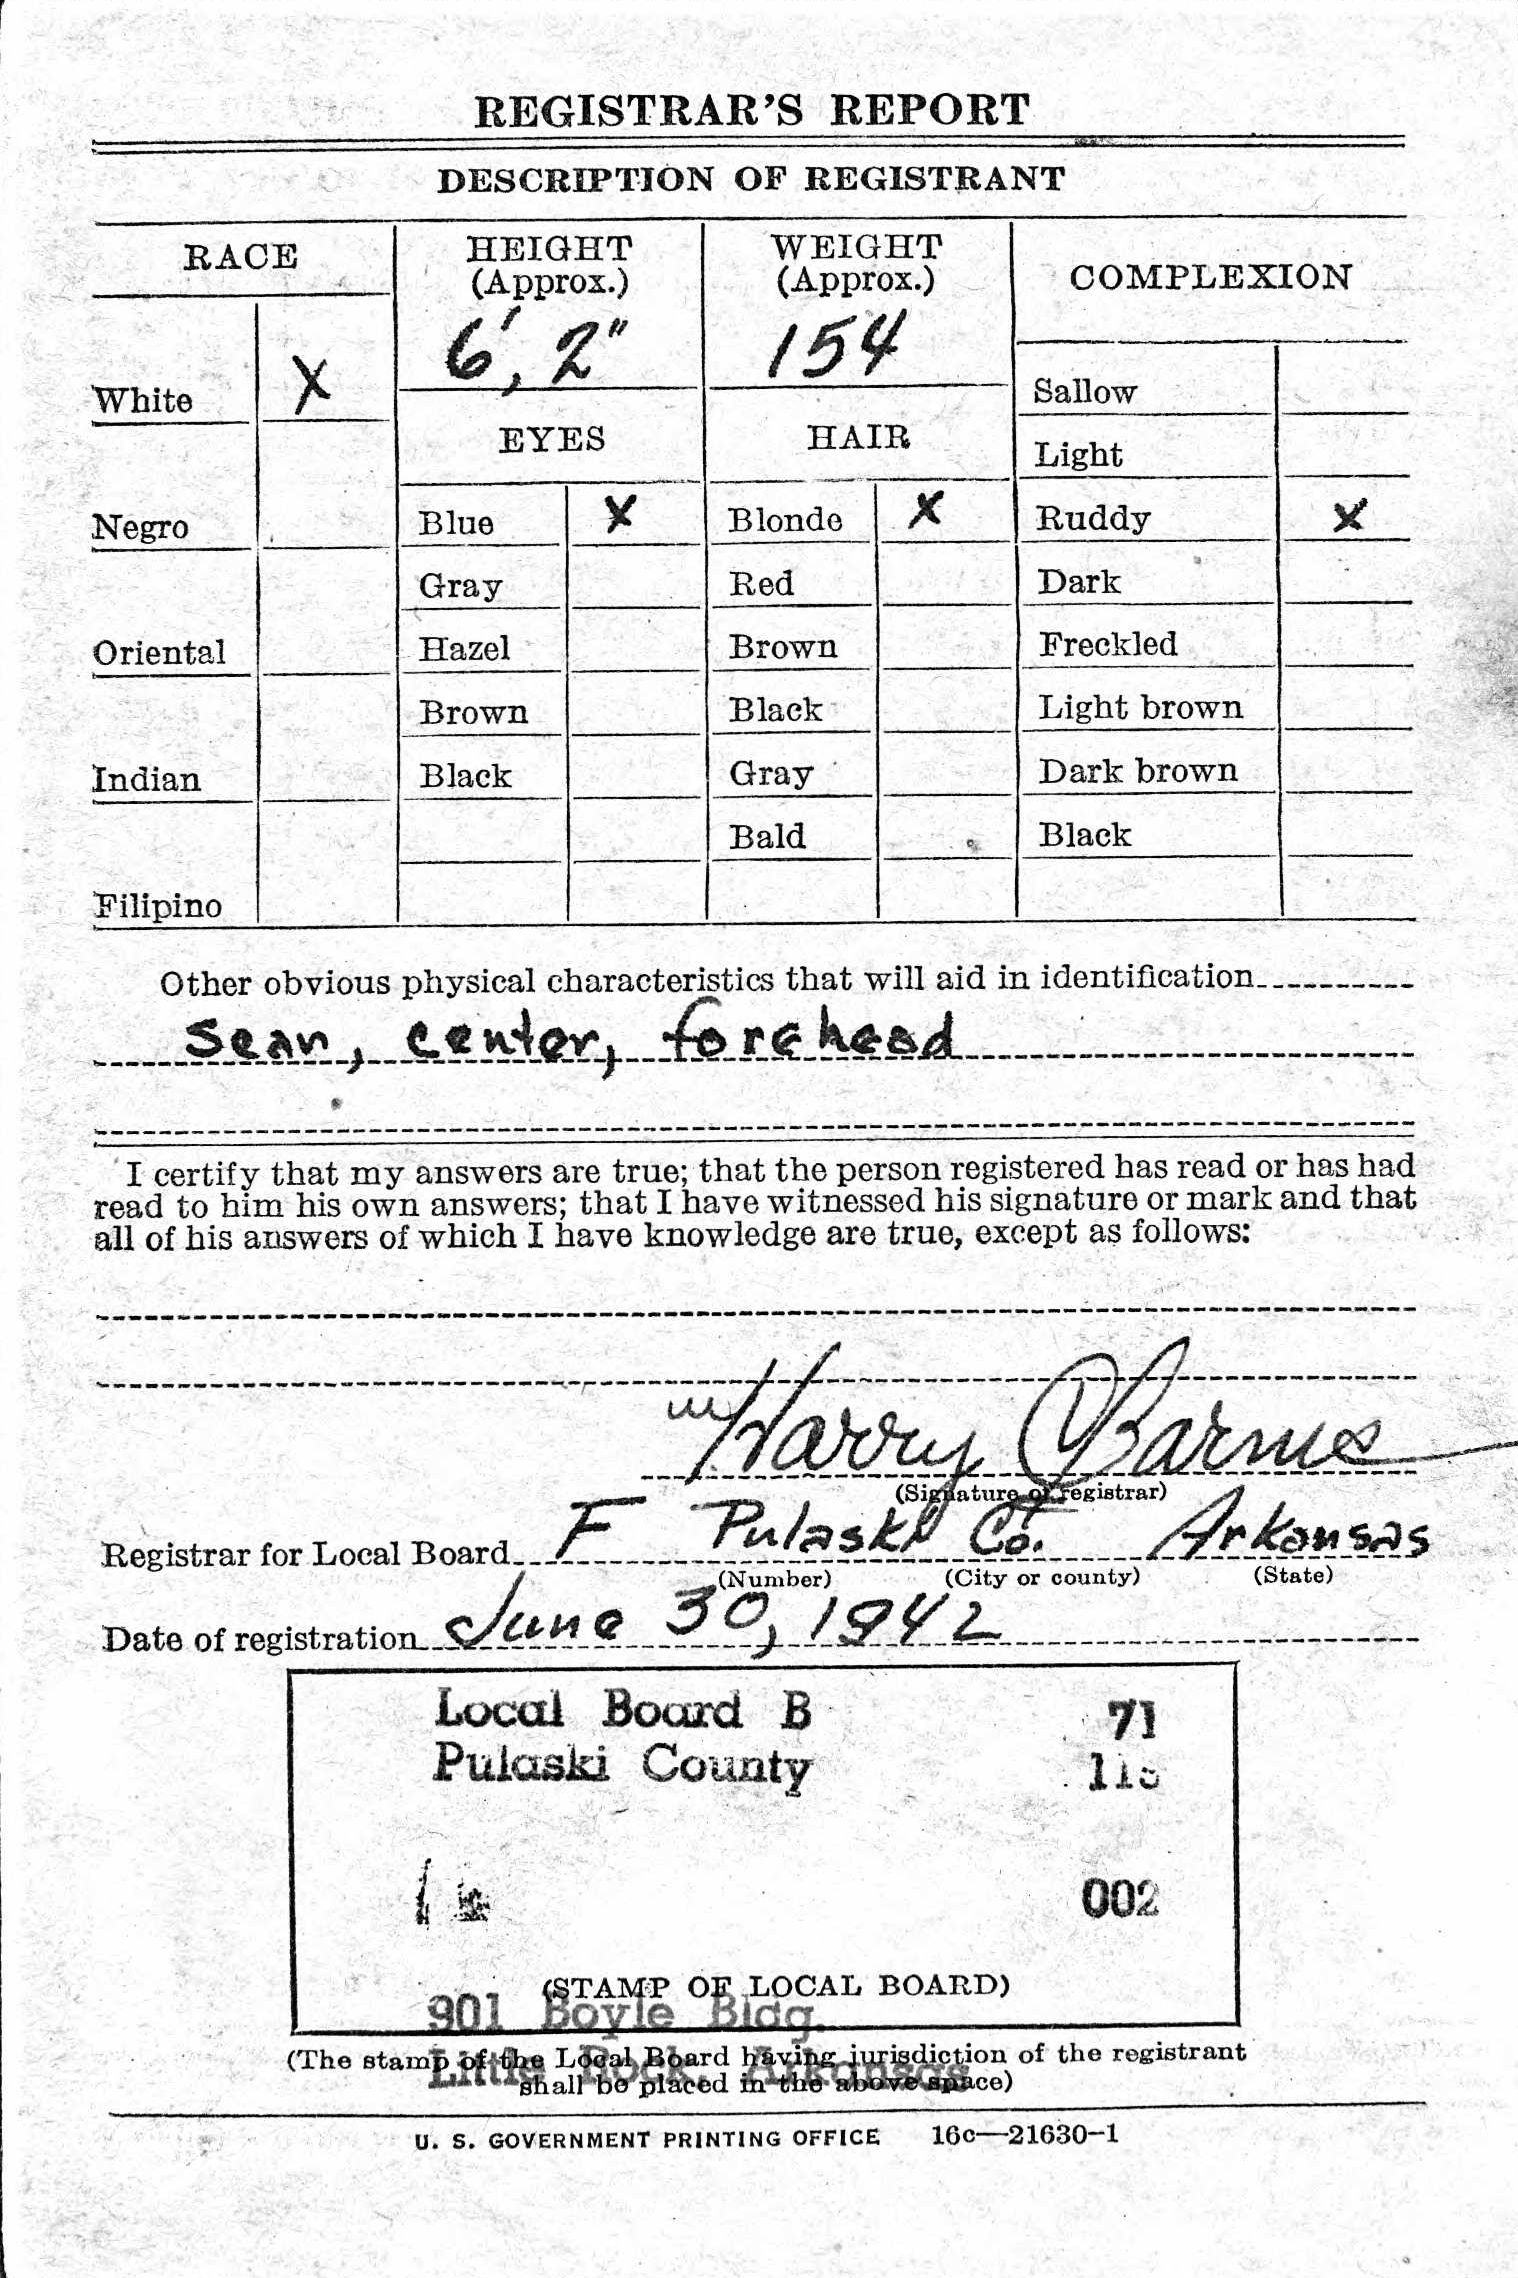 REGISTRAR'S REPORT
DESCRIPTION OF REGISTRANT
RACE
HEIGHT
(Approx.)
WEIGHT
(Approx.)
COMPLEXION
6', 2"
154
White X
Sallow
EYES
HAIR
Light
Negro
Blue X
Blonde X
Ruddy X
Gray
Red
Dark
Oriental
Hazel
Brown
Freckled
Brown
Black
Light brown
Indian
Black
Gray
Dark brown
Bald
Black
Filipino
Other obvious physical characteristics that will aid in identification
Scar, center, forehead
I certify that my answers are true; that the person registered has read or has had
read to him his own answers; that I have witnessed his signature or mark and that
all of his answers of which I have knowledge are true, except as follows:
Harry Barnes
(Signature of registrar)
Registrar for Local Board F Pulaski Co. Arkansas
(Number) (City or county) (State)
Date of registration June 30, 1942
Local Board B 71
Pulaski County
002
(STAMP OF LOCAL BOARD)
901 Boyle Bldg.
Little Rock, Arkansas
(The stamp of the Local Board having jurisdiction of the registrant
shall be placed in the above space)
U. S. GOVERNMENT PRINTING OFFICE 16c—21630-1